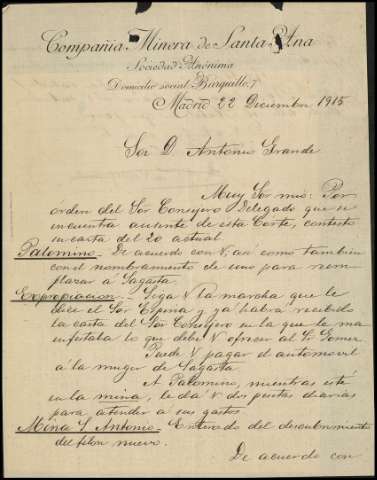 Compañia Minera de Santa Ana
Sociedad Anónima
Domicilio social: Barquillo, 7
Madrid 22 Diciembre 1915
Sor D. Antonio Grande
Muy Sor mio: Por
órden del Sor Consejero Delegado que se
encuentra ausente de esta Corte, contesto
su carta del 20 actual
Palomino.- De acuerdo con V, asi como tambien
con el nombramiento de uno para reem-
plazar á Sagasta
Expropiacion.- Siga V la marcha que le
dice el Sor Espina y ya habrá recibido
la carta del Sor Consejero en la que le ma-
nifestaba lo que debe V ofrecer al Sr Gomez
Puede V pagar el automovil
á la muger de Sagasta
A Palomino, mientras esté
en la mina, le dá V dos pesetas diarias
para atender a sus gastos
Mina S. Antonio- Enterado del descubrimiento
del filon nuevo.
De acuerdo con